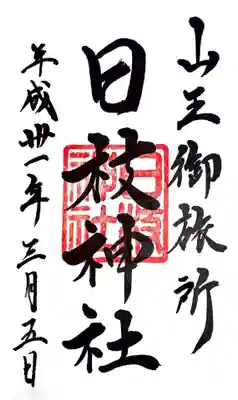 山王御旅所
日枝神社
平成卅一年三月五日
日枝神社